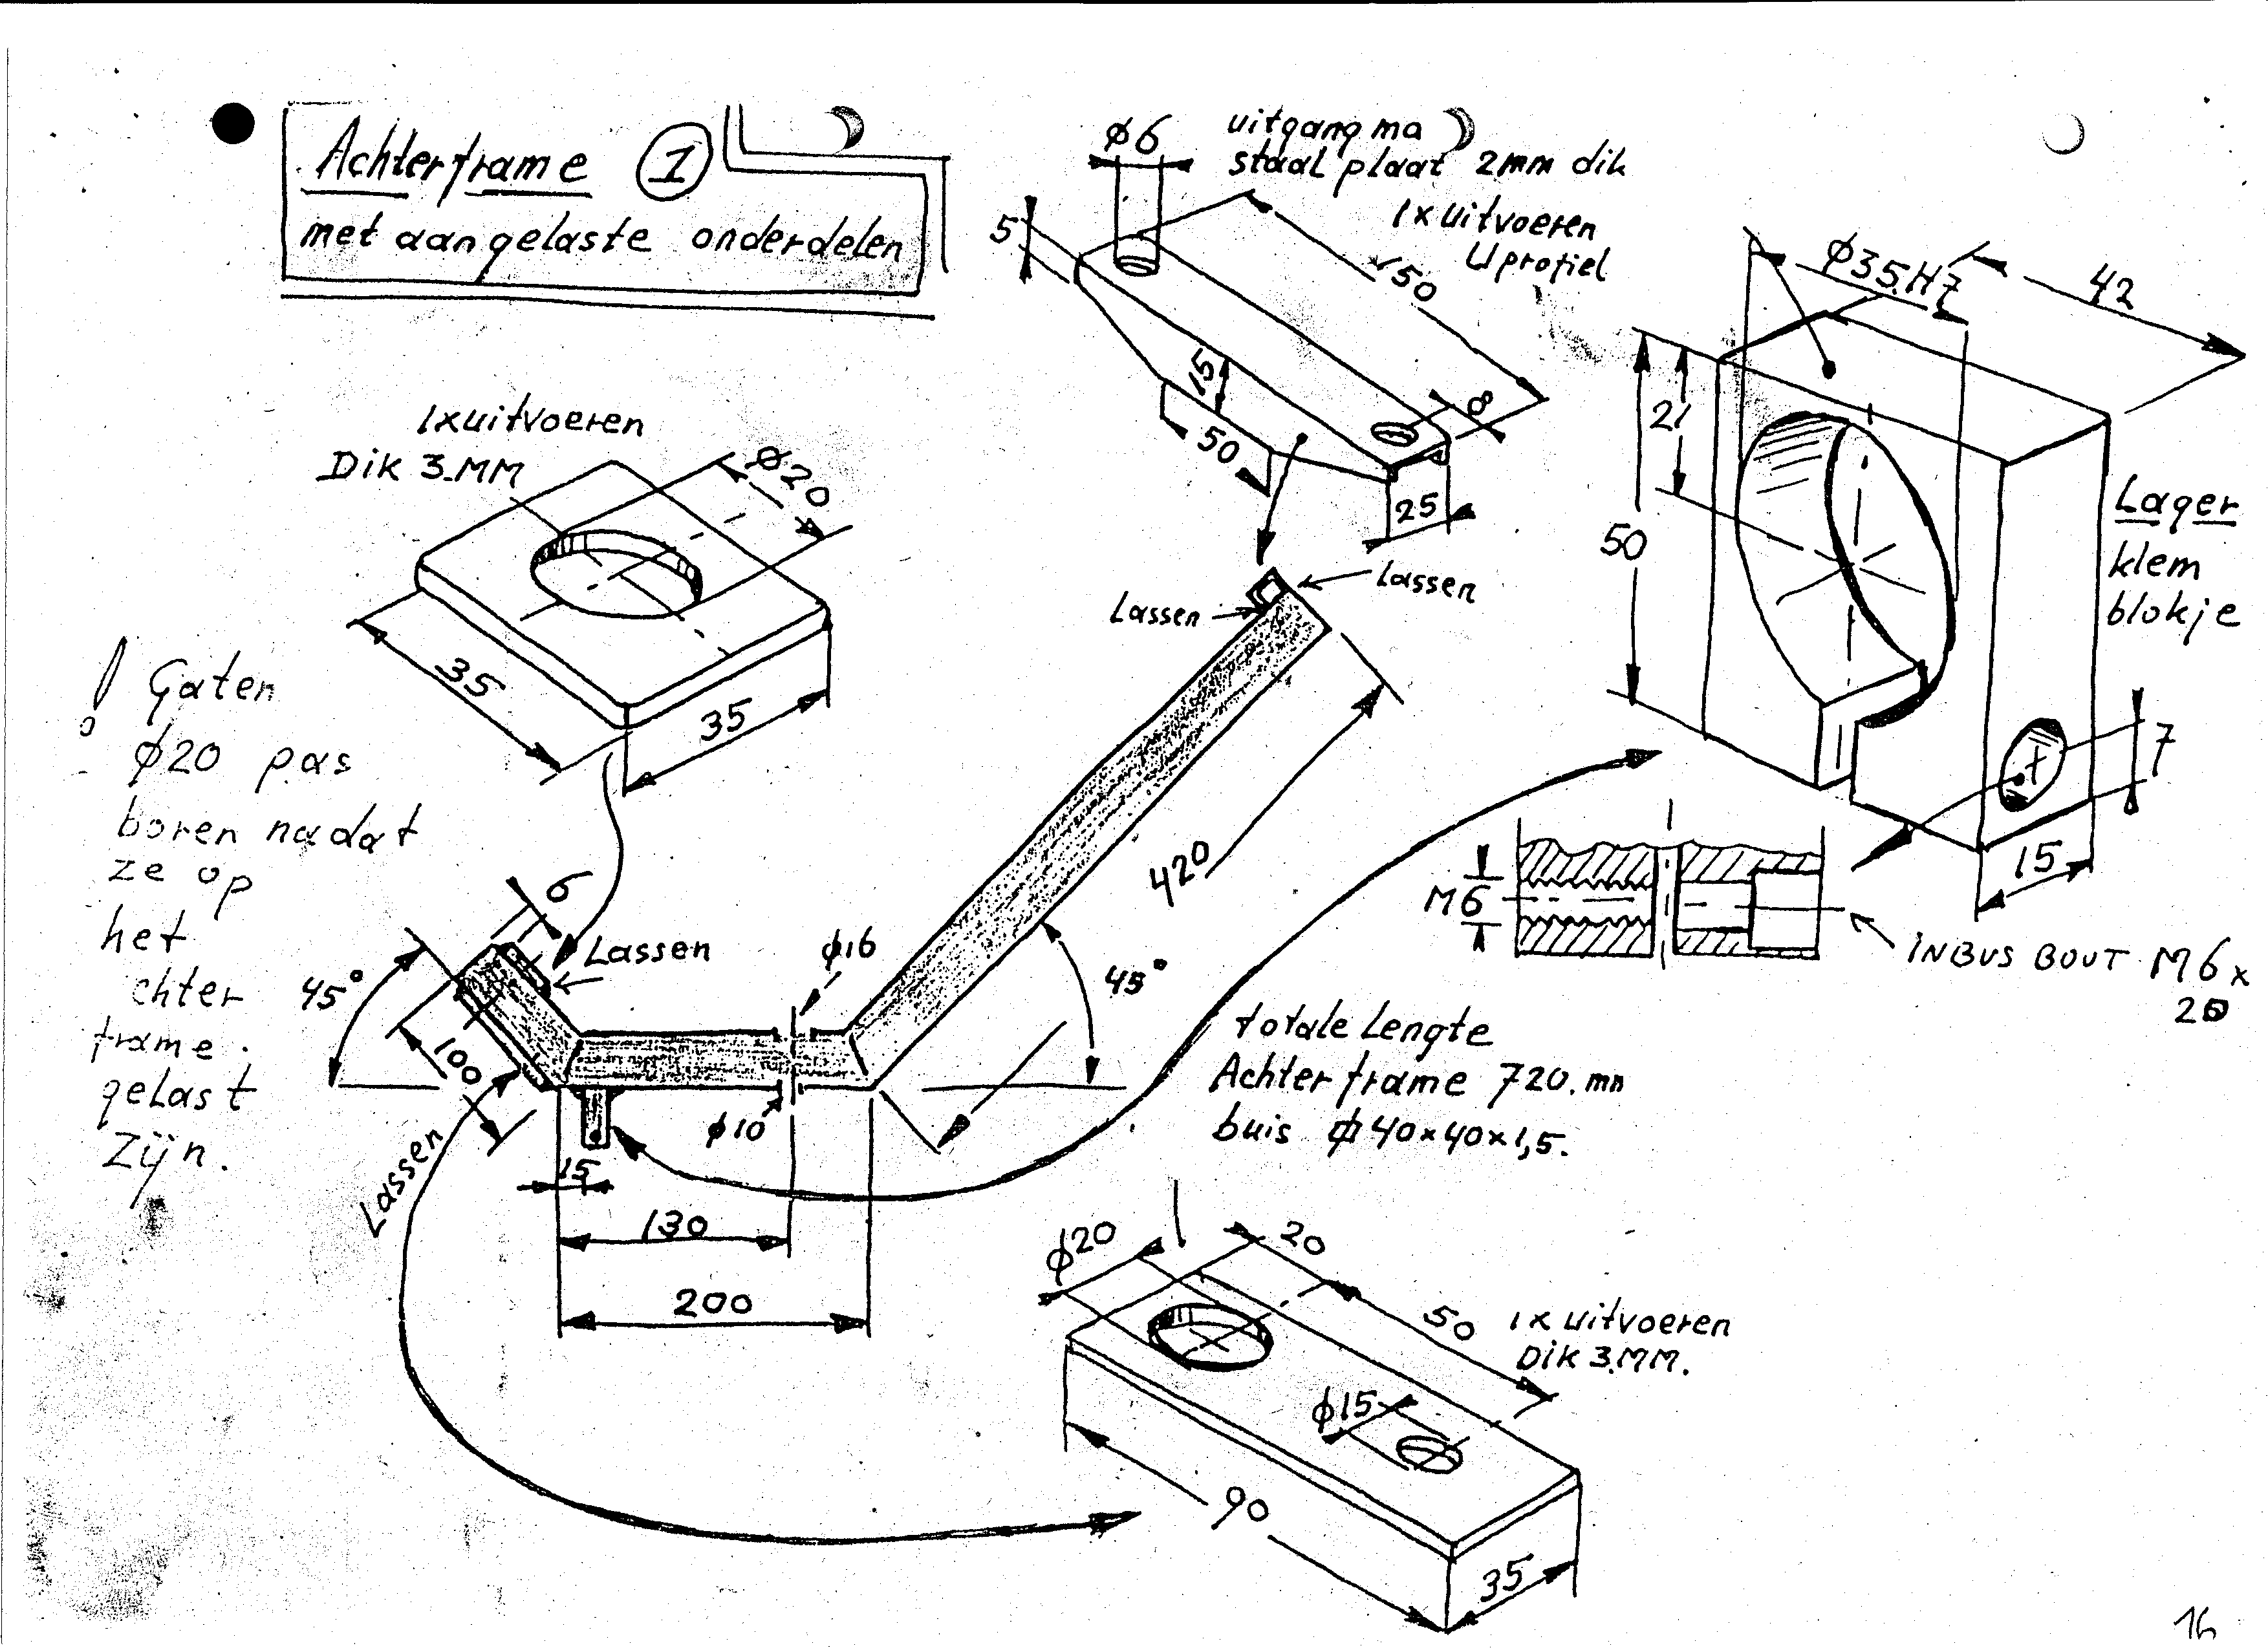 Achterframe 1
met aangelaste onderdelen
ϕ6
uitgang ma
staal plaat 2mm dik
1x uitvoeren
U profiel
5
150
15
50
8
25
ϕ35.H7
42
21
50
Lager
klem
blokje
7
15
1x uitvoeren
Dik 3.MM
ϕ20
35
35
Lassen
Lassen
! Gaten
ϕ20 pas
boren nadat
ze op
het
chter
frame.
gelast
zijn.
6
Lassen
45°
100
Lassen
ϕ16
ϕ10
15
130
200
420
45°
M6
INBUS BOUT M6x
totale Lengte
Achter frame 720.mm
buis 40x40x1,5.
ϕ20
20
50
1x uitvoeren
Dik 3.MM.
ϕ15
90
35
16